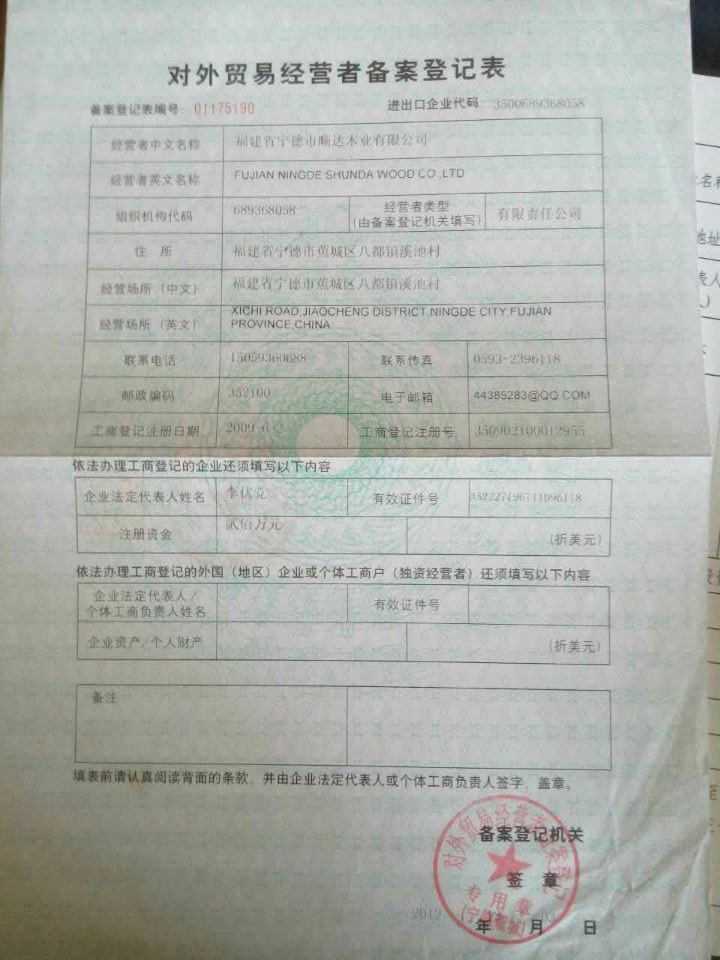 对外贸易经营者备案登记表
备案登记表编号: 01175190 进出口企业代码: 3500689368058
经营者中文名称 福建省宁德市顺达木业有限公司
经营者英文名称 FUJIAN NINGDE SHUNDA WOOD CO.,LTD
组织机构代码 689368058 经营者类型 (由备案登记机关填写) 有限责任公司
住 所 福建省宁德市蕉城区八都镇溪池村
经营场所（中文） 福建省宁德市蕉城区八都镇溪池村
经营场所（英文） XICHI ROAD,JIAOCHENG DISTRICT,NINGDE CITY,FUJIAN
PROVINCE,CHINA
联系电话 15059360688 联系传真 0593-2396118
邮政编码 352100 电子邮箱 44385283@QQ.COM
工商登记注册日期 工商登记注册号 350902100012955
依法办理工商登记的企业还须填写以下内容
企业法定代表人姓名 李伏党 有效证件号
注册资金 贰佰万元 (折美元)
依法办理工商登记的外国（地区）企业或个体工商户（独资经营者）还须填写以下内容
企业法定代表人/
个体工商负责人姓名 有效证件号
企业资产/个人财产 (折美元)
备注
填表前请认真阅读背面的条款，并由企业法定代表人或个体工商负责人签字、盖章。
备案登记机关
签 章
对外贸易经营者备案登记
专用章
2012 年 月 日